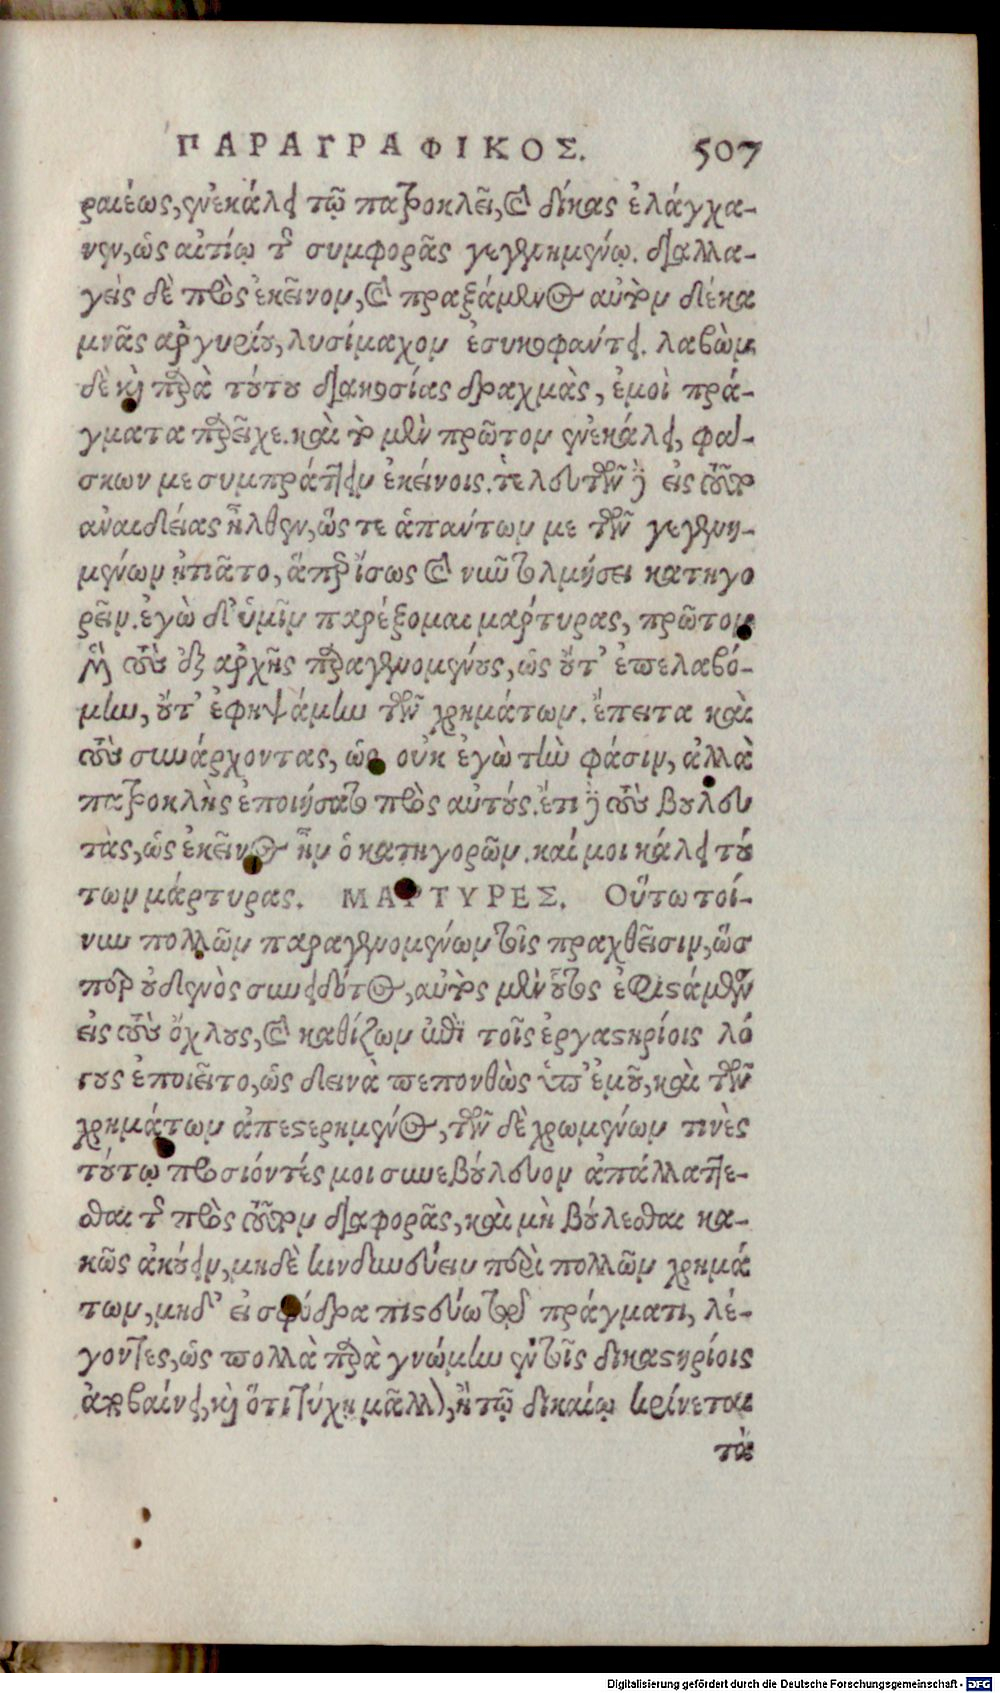 ΠΑΡΑΓΡΑΦΙΚΟΣ. 507
ραιέως, ἐνεκάλει τῷ πατροκλεῖ, καὶ δίκας ἐλάγχα-
νεν, ὡς αἰτίῳ τῆς συμφορᾶς γεγενημένῳ. διαλλα-
γεὶς δὲ πρὸς ἐκεῖνον, καὶ πραξάμενος αὐτὸν δέκα
μνᾶς ἀργυρίου, λυσίμαχον ἐσυκοφάντει. λαβὼν
δὲ καὶ παρὰ τούτου διακοσίας δραχμὰς, ἐμοὶ πρά-
γματα παρεῖχε. καὶ τὸ μὲν πρῶτον ἐνεκάλει, φά-
σκων με συμπράττειν ἐκείνοις. τελευτῶν δὲ εἰς τοῦτο
ἀναιδείας ἦλθεν, ὥς τε ἁπάντων με τῶν γεγενη-
μένων ᾐτιᾶτο, ἅπερ ἴσως καὶ νῦν τολμήσει κατηγο
ρεῖν. ἐγὼ δ' ὑμῖν παρέξομαι μάρτυρας, πρῶτον
μὲν τοὺς ἐξ ἀρχῆς παραγενομένους, ὡς οὔτ' ἐπελαβό-
μην, οὔτ' ἐφηψάμην τῶν χρημάτων. ἔπειτα καὶ
τοὺς συνάρχοντας, ὡς οὐκ ἐγὼ τὴν φάσιν, ἀλλὰ
πατροκλὴς ἐποιήσατο πρὸς αὐτούς. ἔτι δὲ τοὺς βουλευ
τὰς, ὡς ἐκεῖνος ἦν ὁ κατηγορῶν. καί μοι κάλει τού
των μάρτυρας. ΜΑΡΤΥΡΕΣ. Οὕτω τοί-
νυν πολλῶν παραγενομένων τοῖς πραχθεῖσιν, ὥσ
περ οὐδενὸς συνειδότος, αὐτὸς μὲν οὗτος ἐφιστάμενος
εἰς τοὺς ὄχλους, καὶ καθίζων ἐπὶ τοῖς ἐργαστηρίοις λό
γους ἐποιεῖτο, ὡς δεινὰ πεπονθὼς ὑπ' ἐμοῦ, καὶ τῶν
χρημάτων ἀπεστερημένος, τῶν δὲ χρωμένων τινὲς
τούτῳ προσιόντές μοι συνεβούλευον ἀπάλλαττε-
σθαι τῆς πρὸς τοῦτον διαφορᾶς, καὶ μὴ βούλεσθαι κα-
κῶς ἀκούειν, μηδὲ κινδυνεύειν περὶ πολλῶν χρημά
των, μηδ' εἰ σφόδρα πιστεύω τῷ πράγματι, λέ-
γοντες, ὡς πολλὰ παρὰ γνώμην ἐν τοῖς δικαστηρίοις
ἀποβαίνει, καὶ ὅτι τύχῃ μᾶλλον, ἢ τῷ δικαίῳ κρίνεται
τὰ
Digitalisierung gefördert durch die Deutsche Forschungsgemeinschaft - DFG